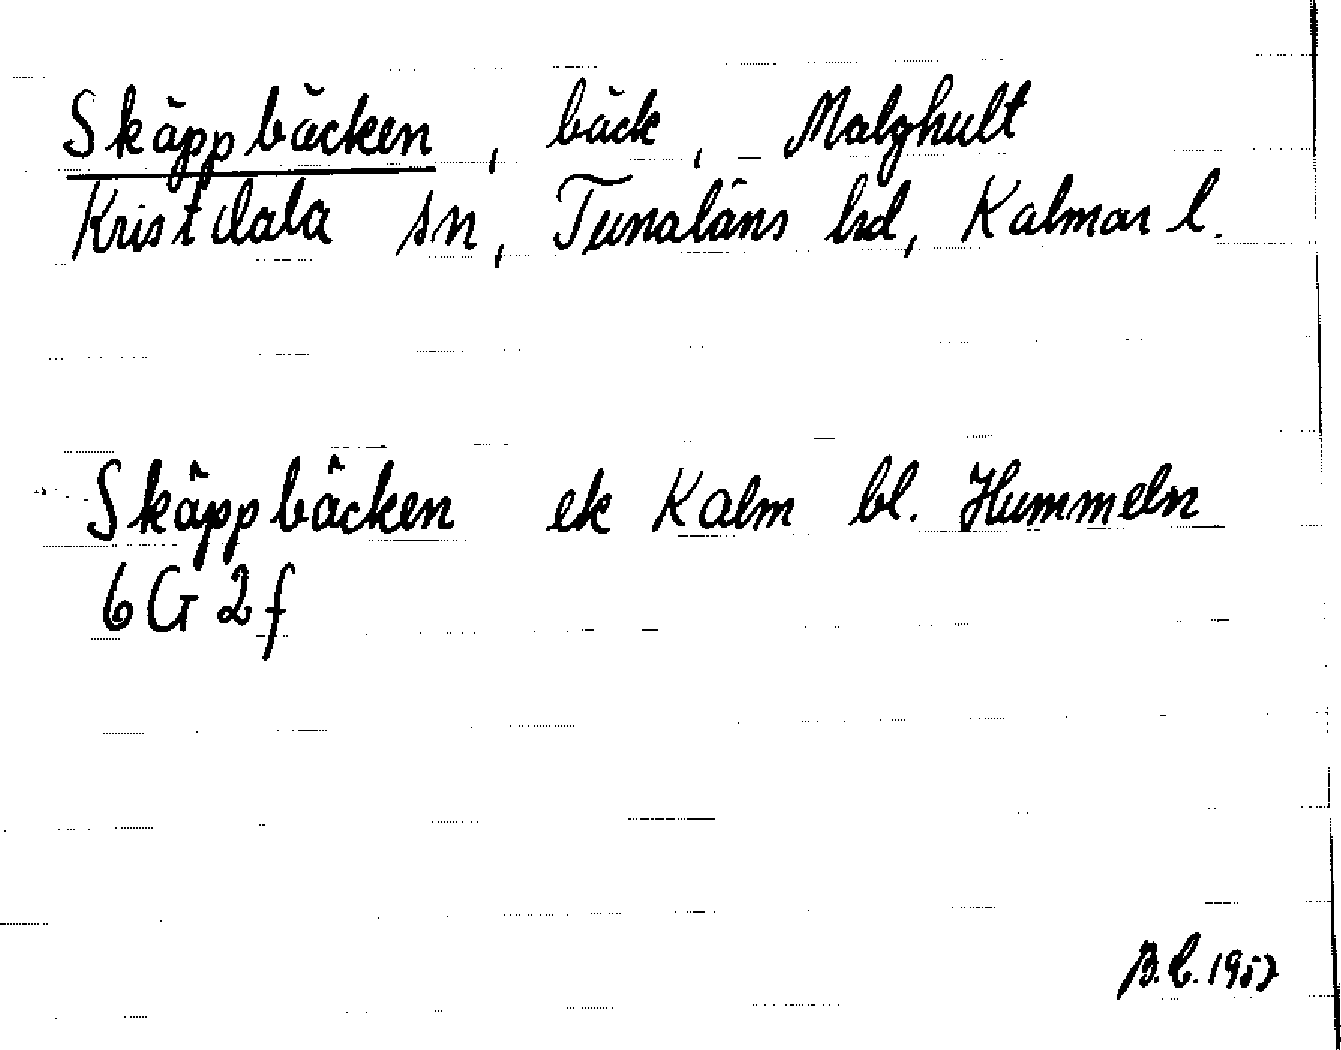 Skäppbäcken, bäck, Malghult
Kristdala sn, Tunaläns hd, Kalmar l.
Skäppbäcken ek Kalm bl. Hummeln
6G2f
B.L. 1957